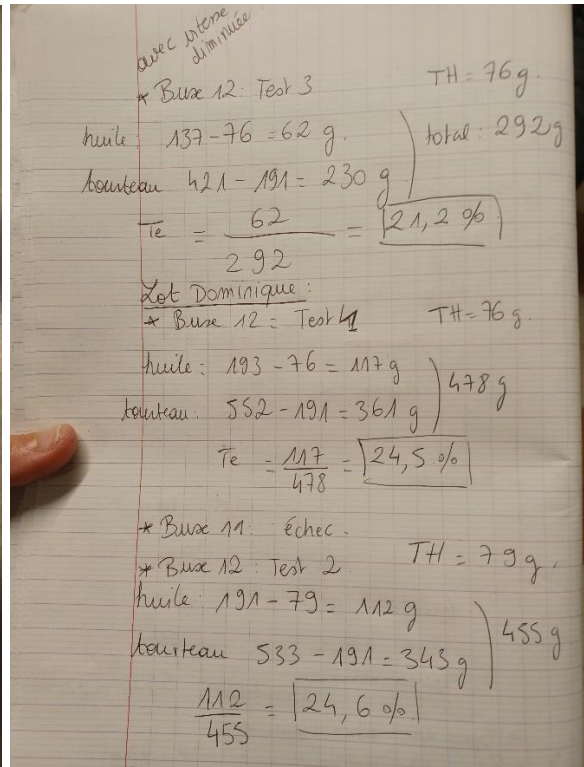 avec vitesse
diminuée
* Buse 12: Test 3 TH = 76 g.
huile: 137 - 76 = 62 g.
total: 292 g
tourteau 421 - 191 = 230 g
Te = 62 / 292 = 21,2 %
Lot Dominique:
* Buse 12 = Test 1 TH = 76 g.
huile: 193 - 76 = 117 g
478 g
tourteau: 552 - 191 = 361 g
Te = 117 / 478 = 24,5 %
* Buse 11: échec.
* Buse 12: Test 2 TH = 79 g.
huile: 191 - 79 = 112 g
455 g
tourteau 533 - 191 = 343 g
112 / 455 = 24,6 %